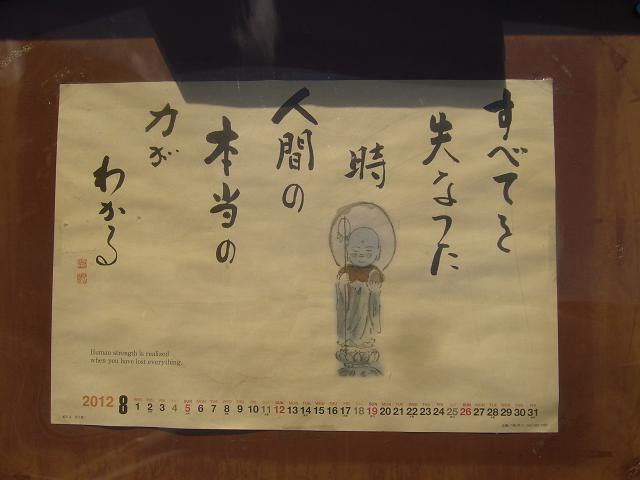 すべてを
失なった
時
人間の
本当の
力が
わかる
Human strength is realized
when you have lost everything.
2012 8
WED THU FRI SAT SUN MON TUE WED THU FRI SAT SUN MON TUE WED THU FRI SAT SUN MON TUE WED THU FRI SAT SUN MON TUE WED THU FRI
1 2 3 4 5 6 7 8 9 10 11 12 13 14 15 16 17 18 19 20 21 22 23 24 25 26 27 28 29 30 31